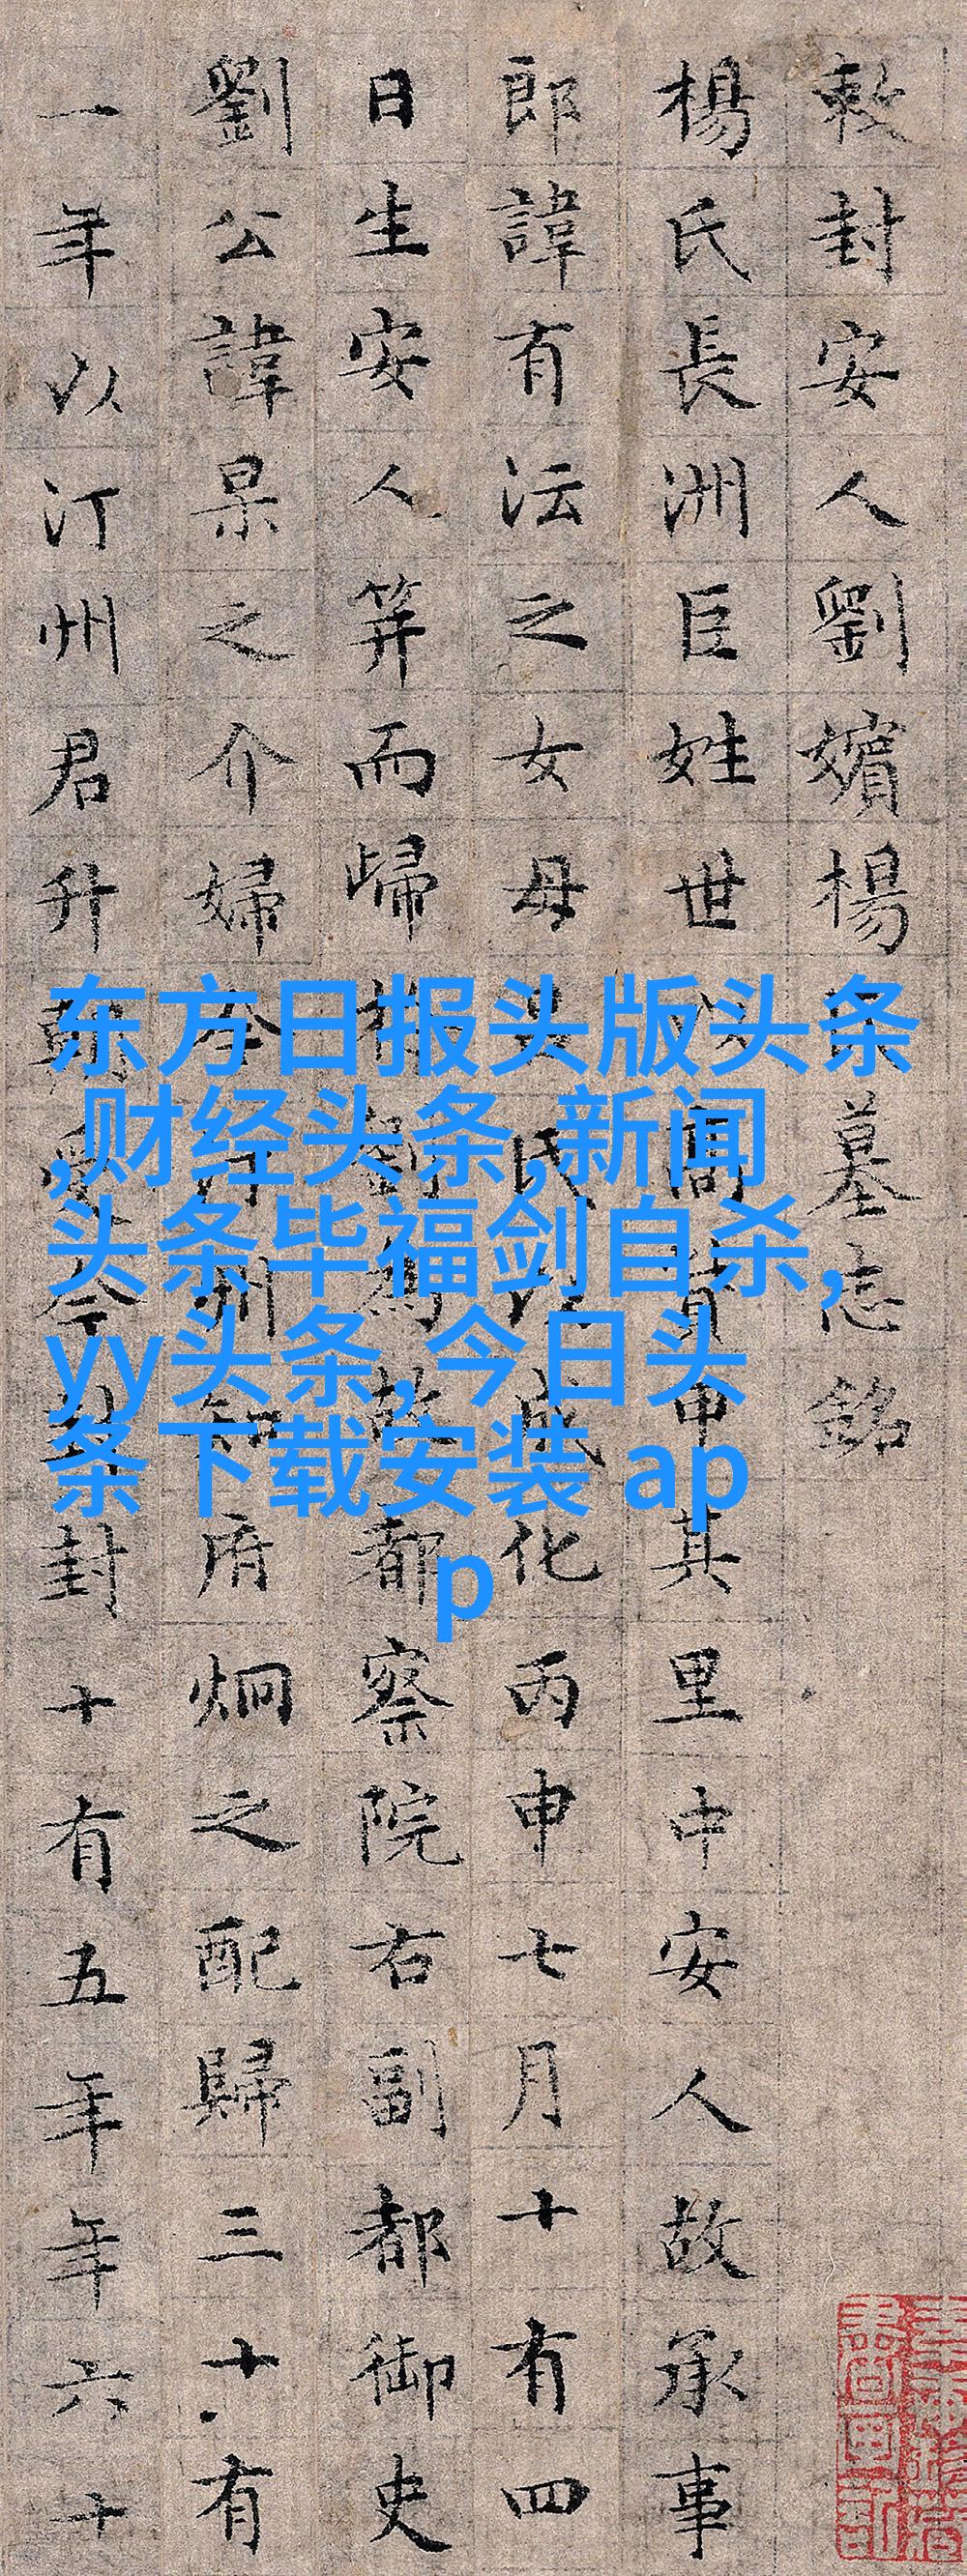 敕封安人劉嬪楊氏墓志銘
楊氏長洲巨姓世以高貲甲其里中安人故承事
郎諱有沄之女母吴氏以成化丙申七月十有四
日生安人笄而歸於劉為故都察院右副都御史
劉公諱杲之介婦今汀州知府炯之配歸三十有
一年以汀州君升朝受今敕封十有五年年六十
东方日报头版头条
,财经头条,新闻
头条毕福剑自杀,
yy头条,今日头
条下载安装 ap
p